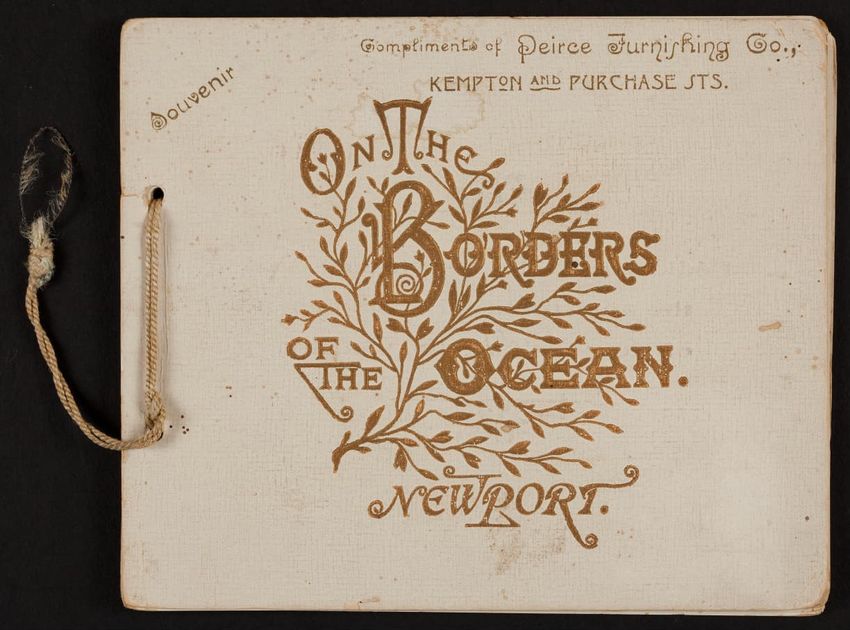 Compliments of Peirce Furnishing Co.,
KEMPTON AND PURCHASE STS.
Souvenir
ON THE
BORDERS
OF THE
OCEAN.
NEWPORT.